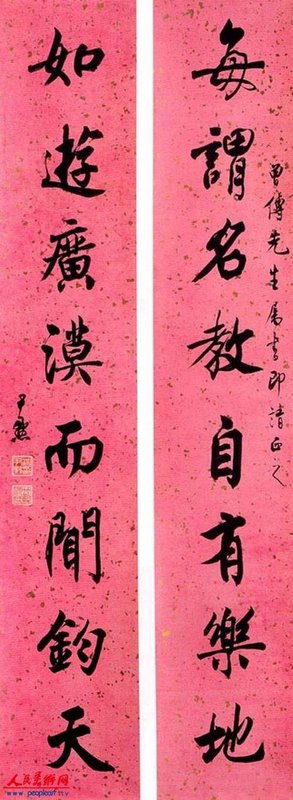 每謂名教自有樂地
曾傳先生属書即請正之
如遊廣漠而聞鈞天
尹默
人民美術网
www.peopleart.tv